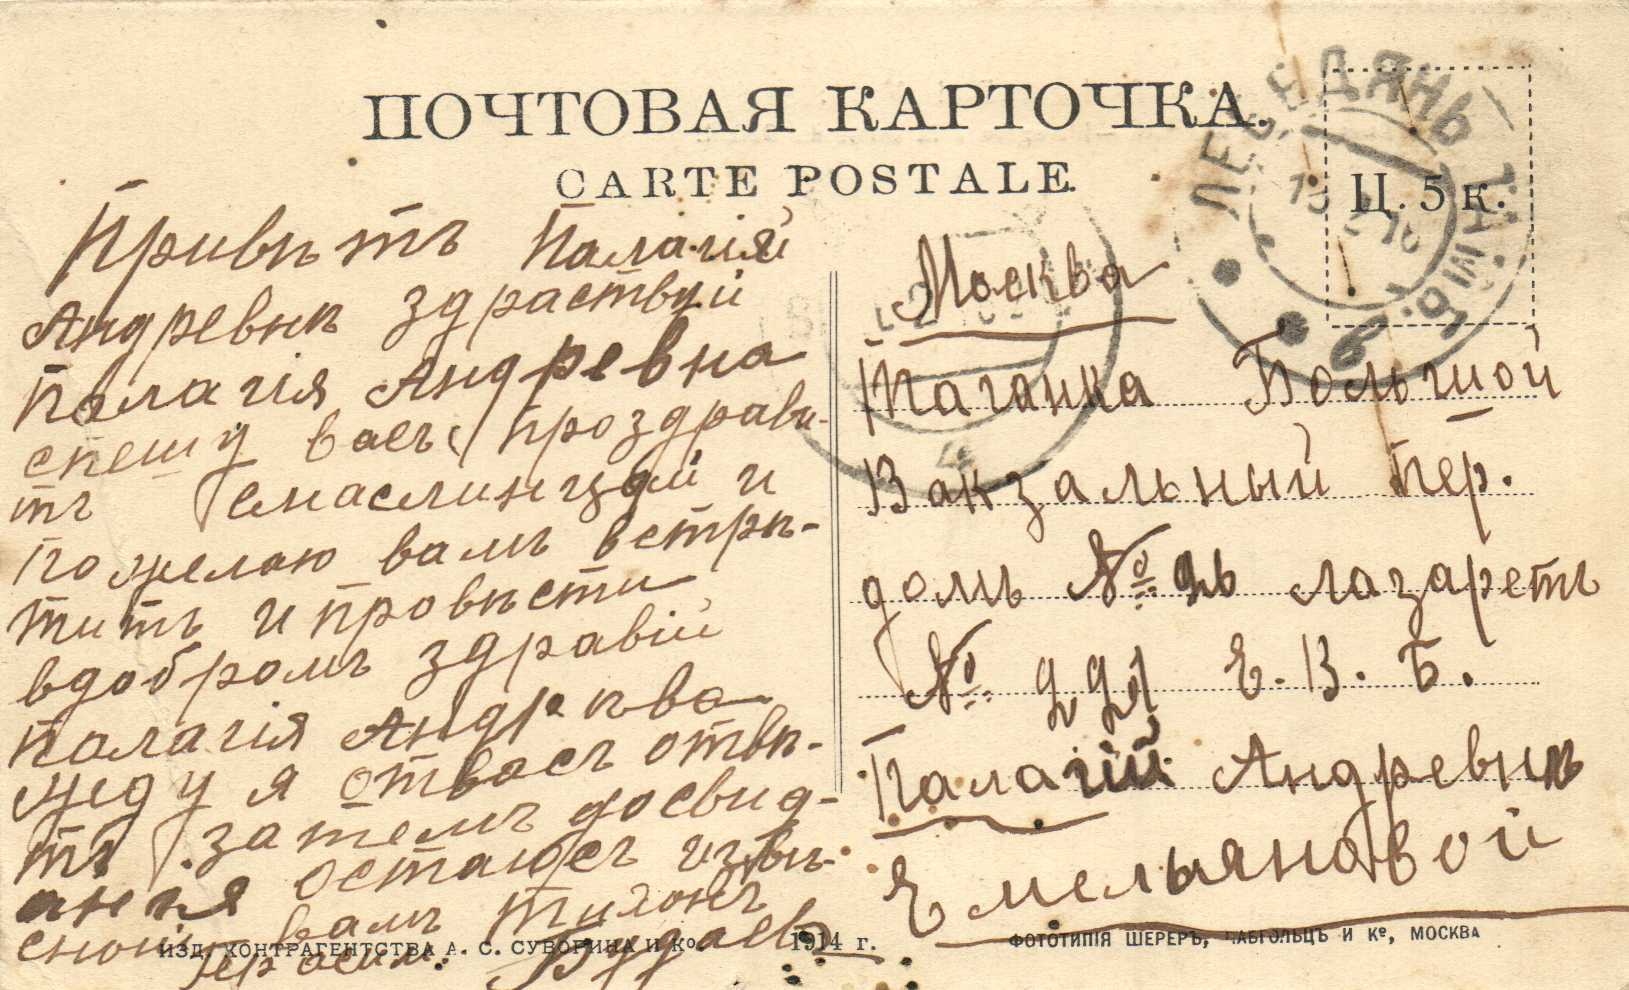 ПОЧТОВАЯ КАРТОЧКА.
CARTE POSTALE.
Ц. 5 к.
ЛЕБЕДЯНЬ ТАМБ.
Привѣтъ Палагiй
Андревнѣ здраствуй
Палагiя Андревна
спешу васъ проздрави-
тъ смаслиницой и
пожелаю вамъ встрѣ-
тить и провѣсти
вдобромъ здравiй
Палагiя Андрѣвна
жеду я отвасъ отвѣ-
тъ. затемъ досвид-
анѣя остаюсъ извѣ-
сной вамъ Тихонъ
Герасим. Будаевъ
Москва
Таганка Большой
Вакзальный Пер.
домъ № 26 лазаретъ
№ 221 Е. В. Б.
Палагiй Андревнѣ
Емельяновой
ИЗД. КОНТРАГЕНТСТВА А. С. СУВОРИНА И Кº 1914 г.
ФОТОТИПIЯ ШЕРЕРЪ, НАБГОЛЬЦЪ И Кº, МОСКВА